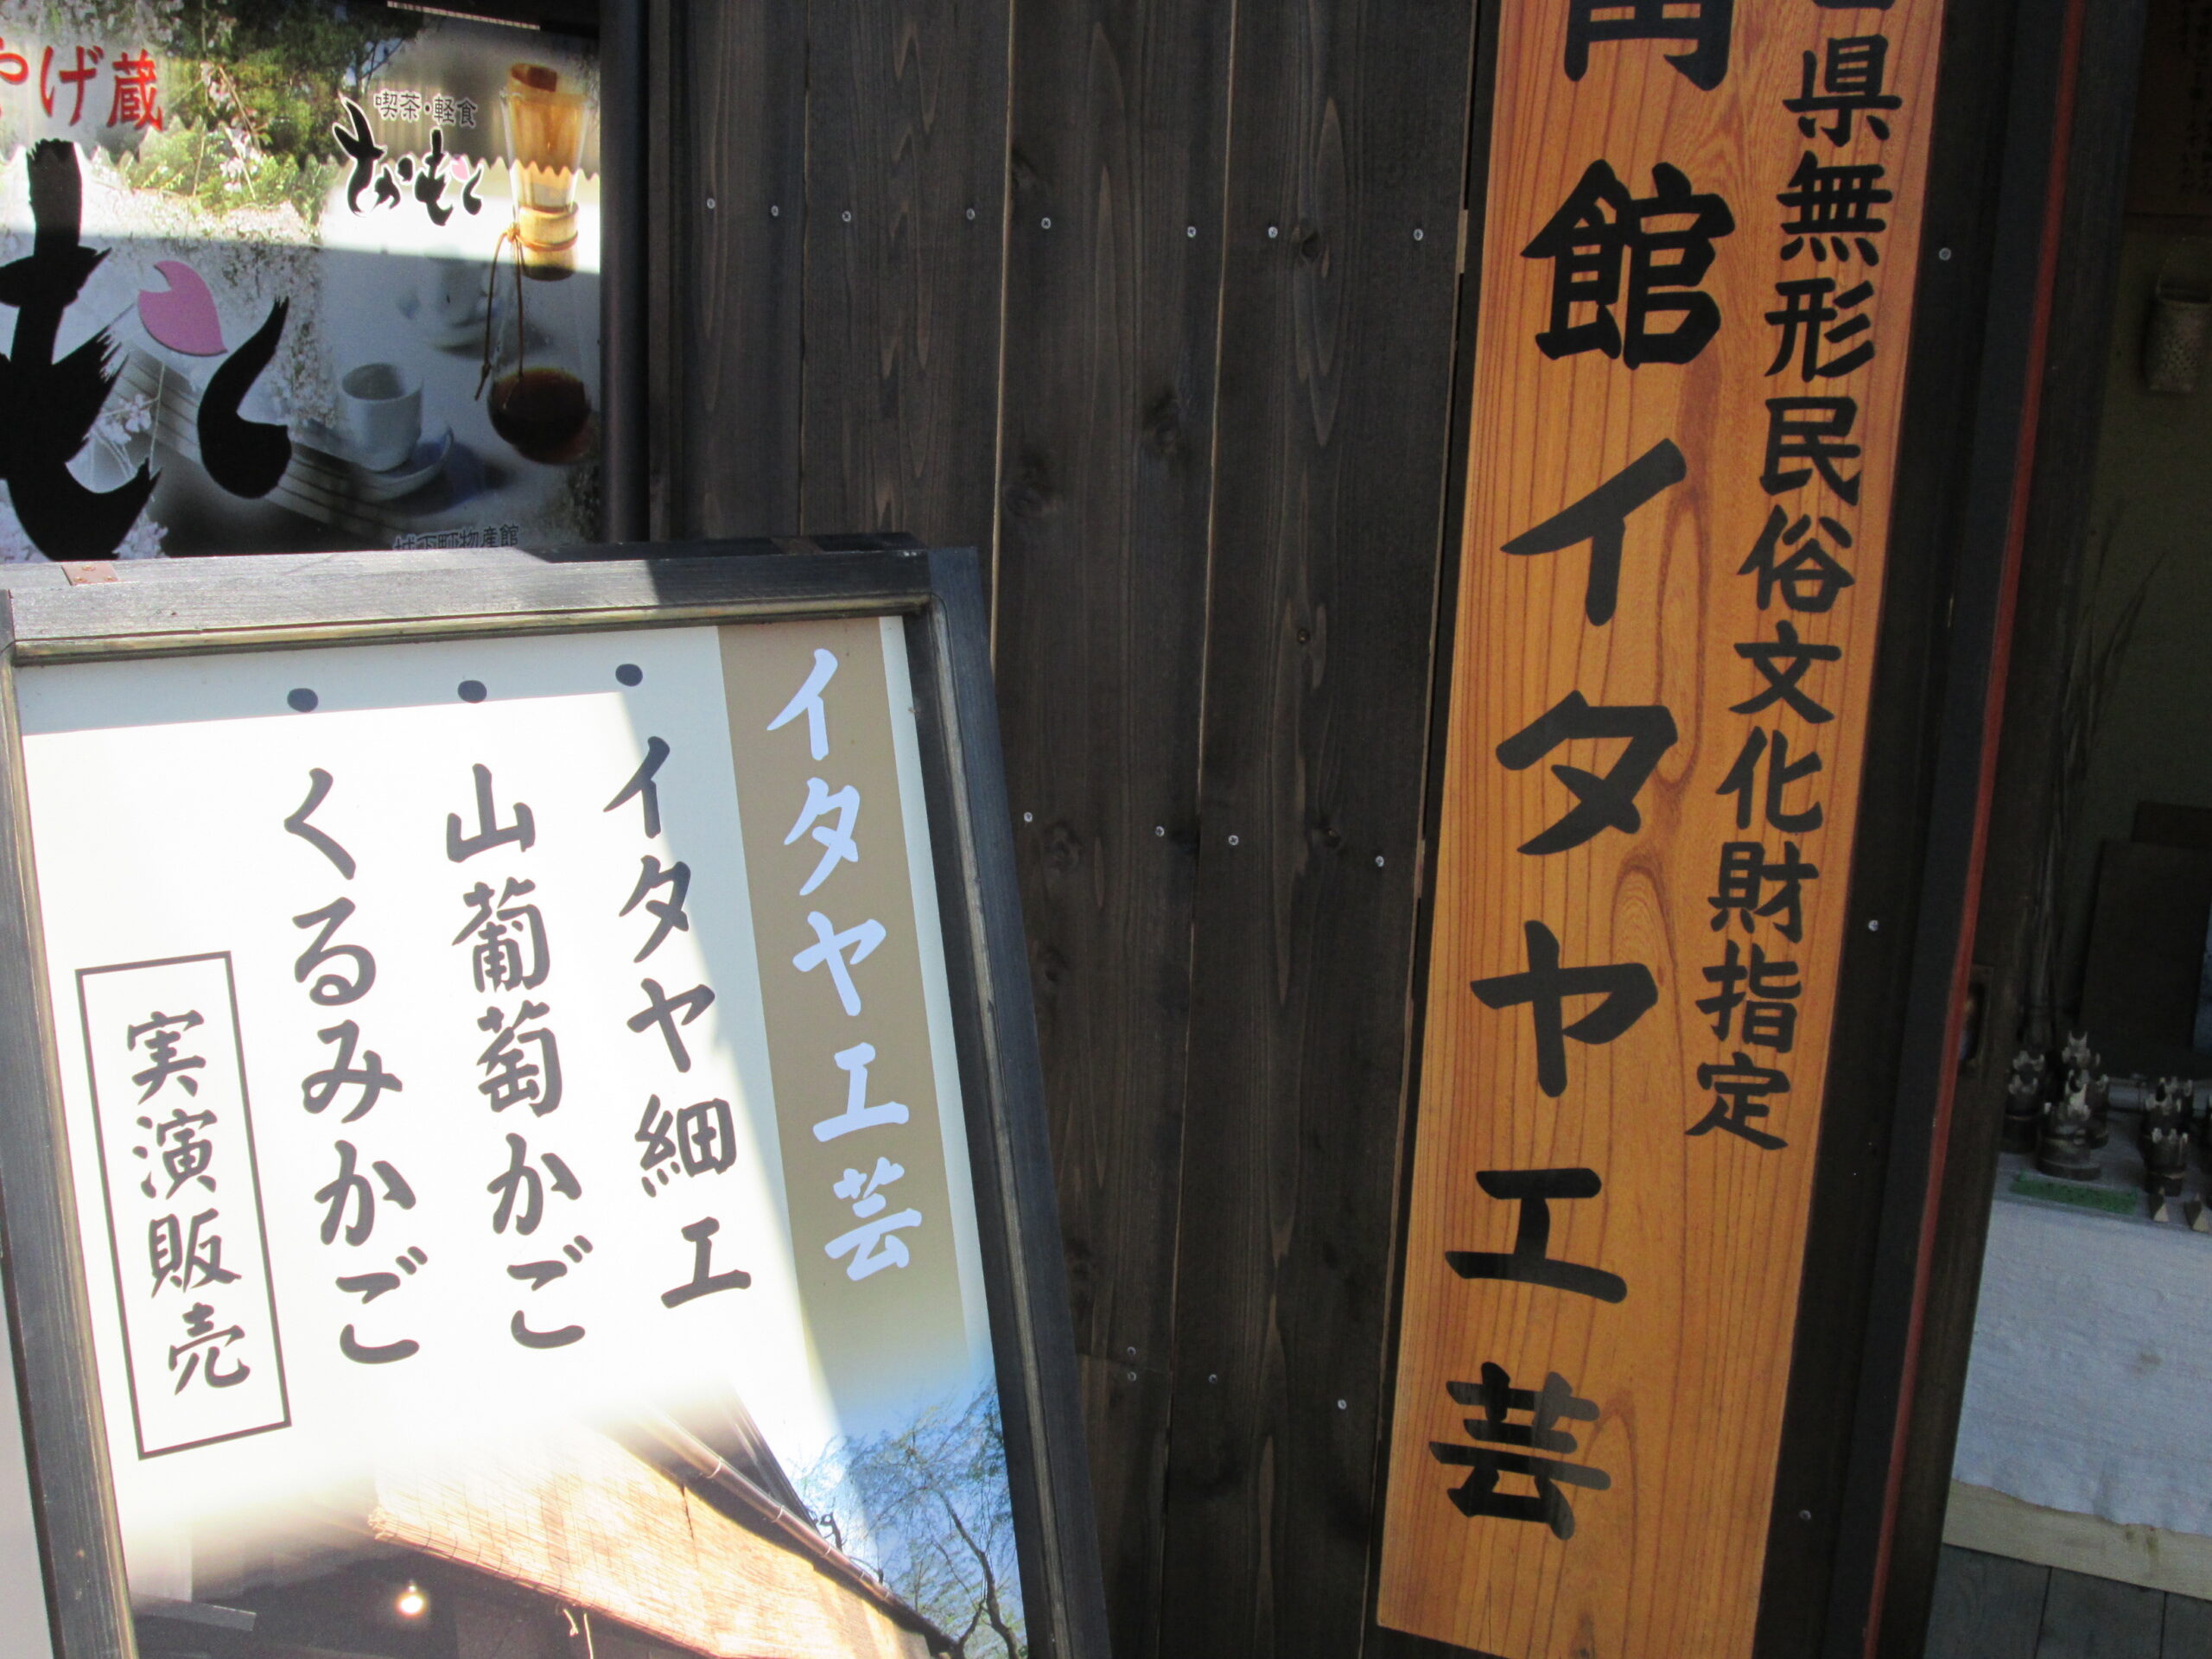 県無形民俗文化財指定
角館イタヤ工芸
イタヤ工芸
・イタヤ細工
・山葡萄かご
・くるみかご
実演販売
やげ蔵
喫茶・軽食
さかもと
城下町物産館